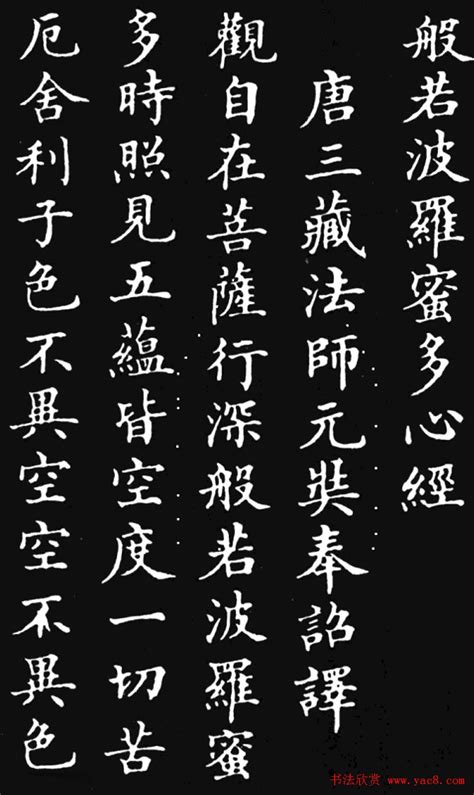 般若波羅蜜多心經
唐三藏法師元奘奉詔譯
觀自在菩薩行深般若波羅蜜
多時照見五蘊皆空度一切苦
厄舍利子色不異空空不異色
书法欣赏 www.yac8.com